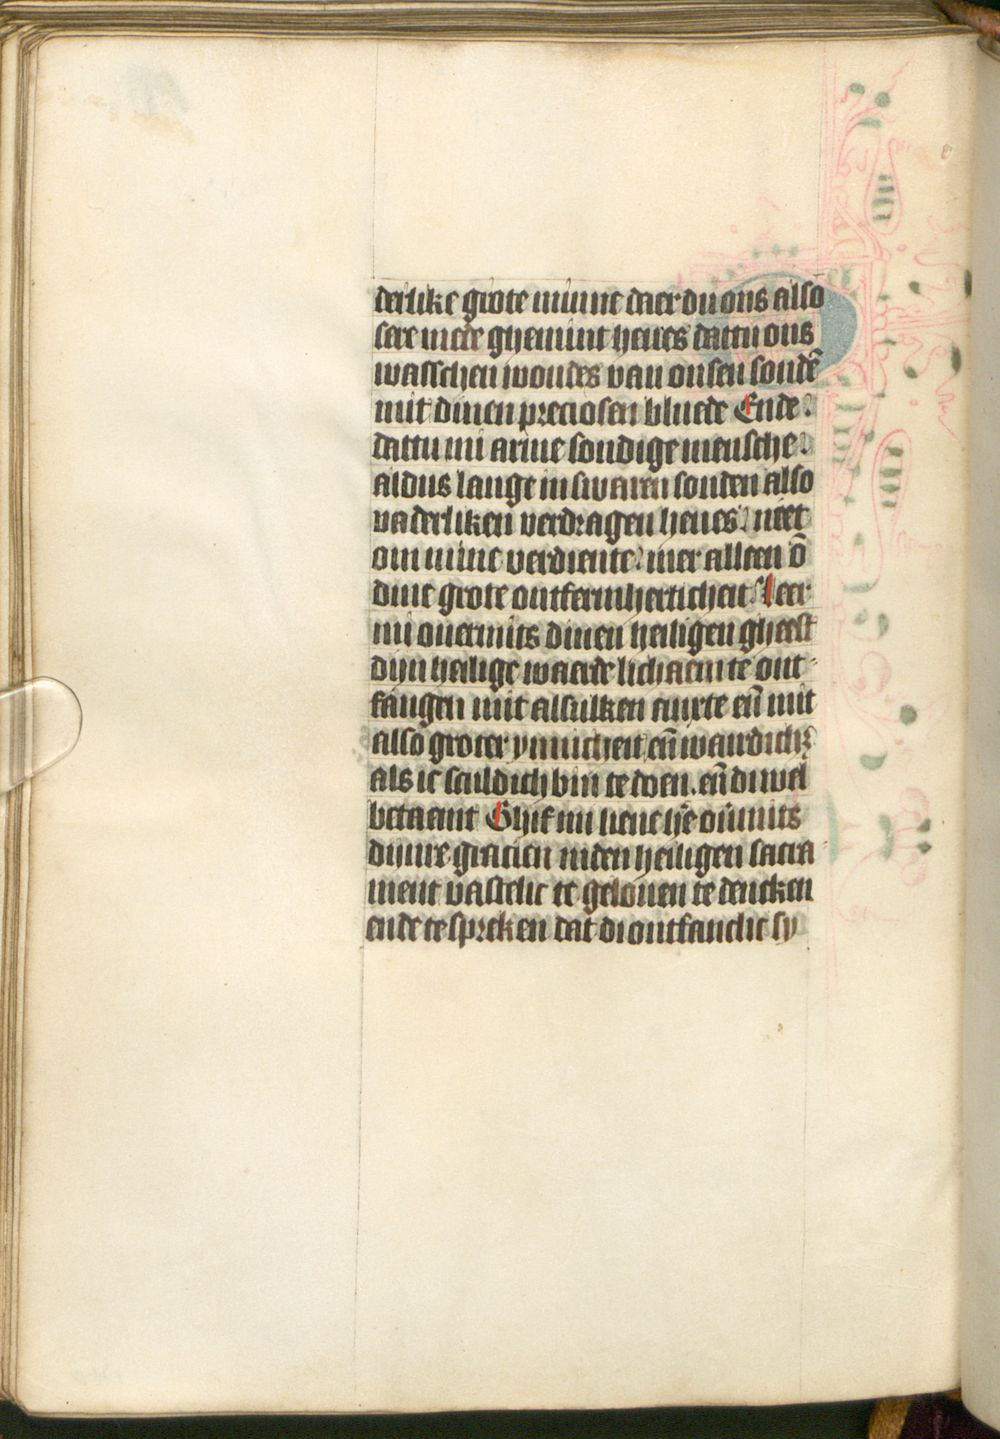 derlike grote minne daer du ons also
sere mede ghemint heues dattu ons
wasschen woudes van onsen sondē
mit dinen preciosen bluede Ende
dattu mi arme sondige mensche
aldus lange in swaren sonden also
vaderliken verdragen heues neet
om mine verdiente mer alleen ō
dine grote ontfermherticheit Leer
mi ouermits dinen heiligen gheest
dijn heilige waerde lichaem te ont-
fangen mit alsulken anxte eñ mit
also groter ynnicheit eñ waerdich
als ic sculdich bin te doen. eñ di wel
betaemt Ghif mi lieue hē oūmits
dijnre gracien inden heiligen sacra
ment vastelic te gelouen te dencken
ende te spreken dat di ontfanclic sy